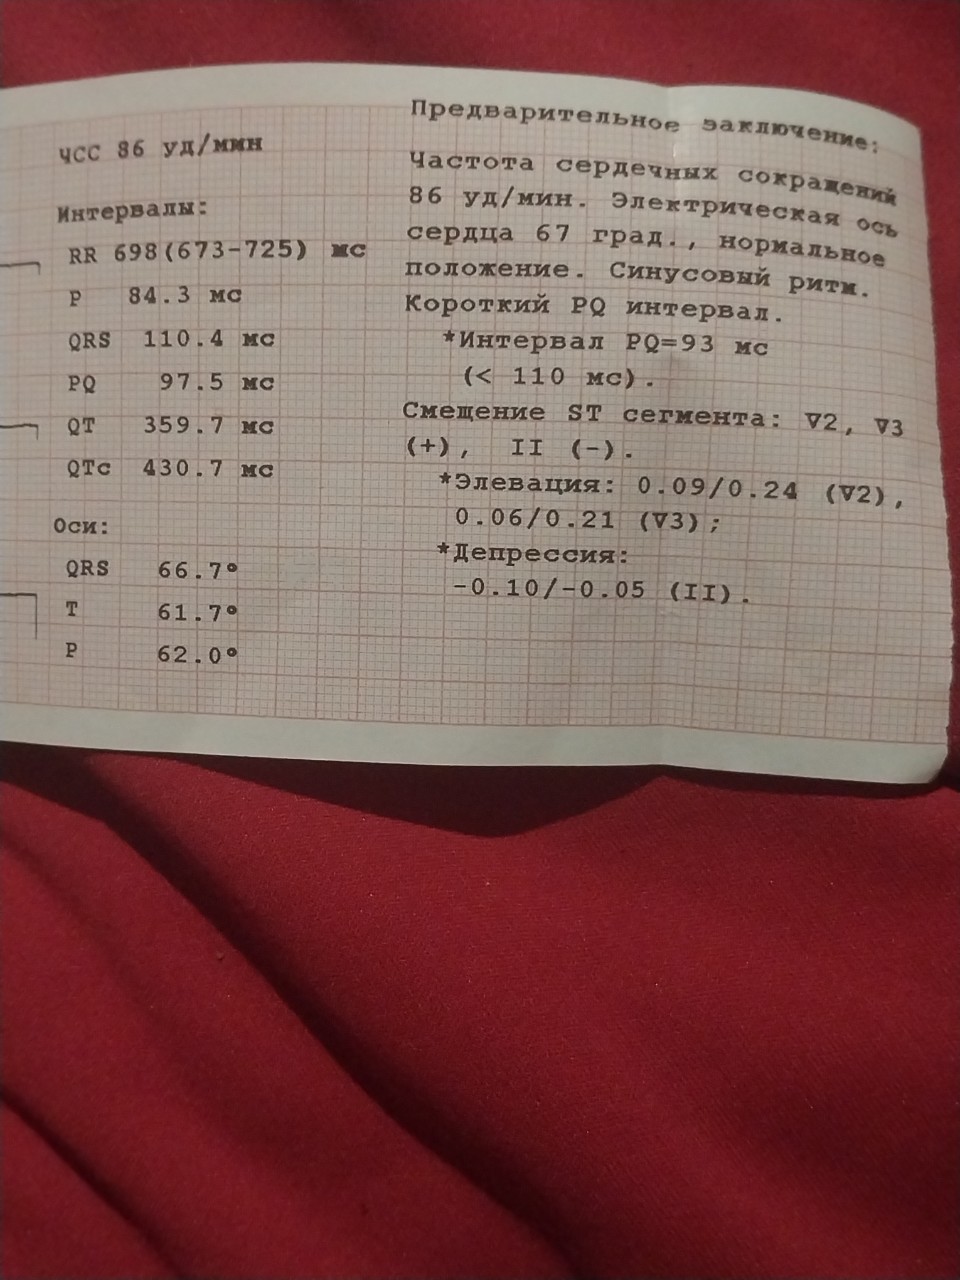 ЧСС 86 уд/мин
Интервалы:
RR 698(673-725) мс
P 84.3 мс
QRS 110.4 мс
PQ 97.5 мс
QT 359.7 мс
QTc 430.7 мс
Оси:
QRS 66.7°
T 61.7°
P 62.0°
Предварительное заключение:
Частота сердечных сокращений
86 уд/мин. Электрическая ось
сердца 67 град., нормальное
положение. Синусовый ритм.
Короткий PQ интервал.
*Интервал PQ=93 мс
(< 110 мс).
Смещение ST сегмента: V2, V3
(+), II (-).
*Элевация: 0.09/0.24 (V2),
0.06/0.21 (V3);
*Депрессия:
-0.10/-0.05 (II).